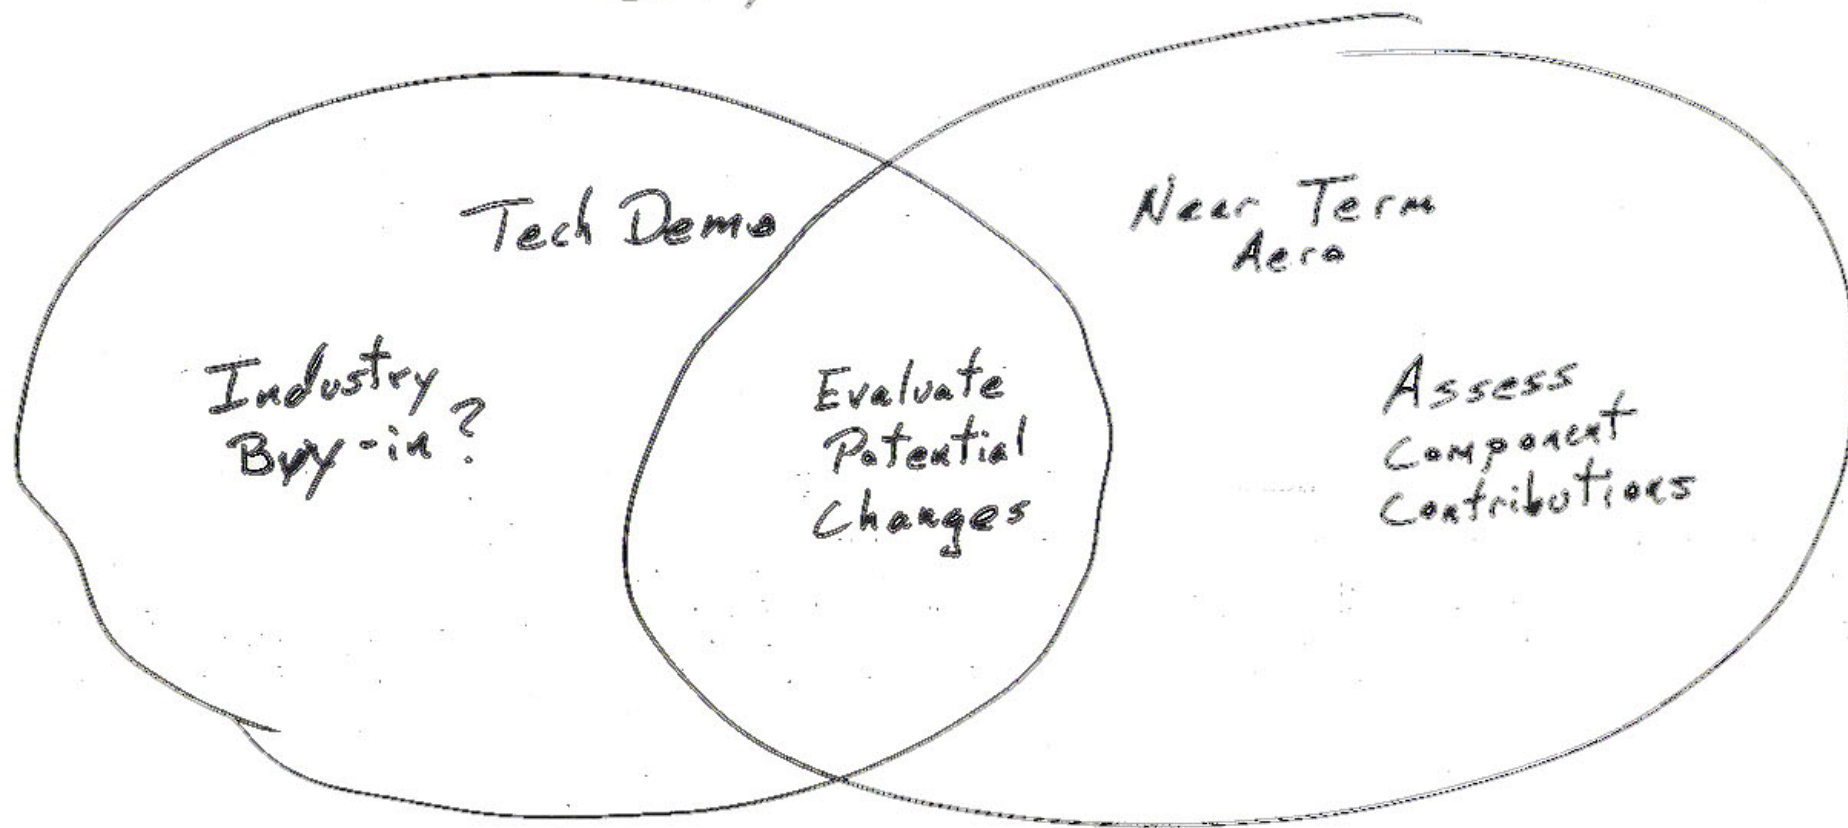 Tech Demo
Industry
Buy-in?
Evaluate
Potential
Changes
Near Term
Aero
Assess
Component
Contributions